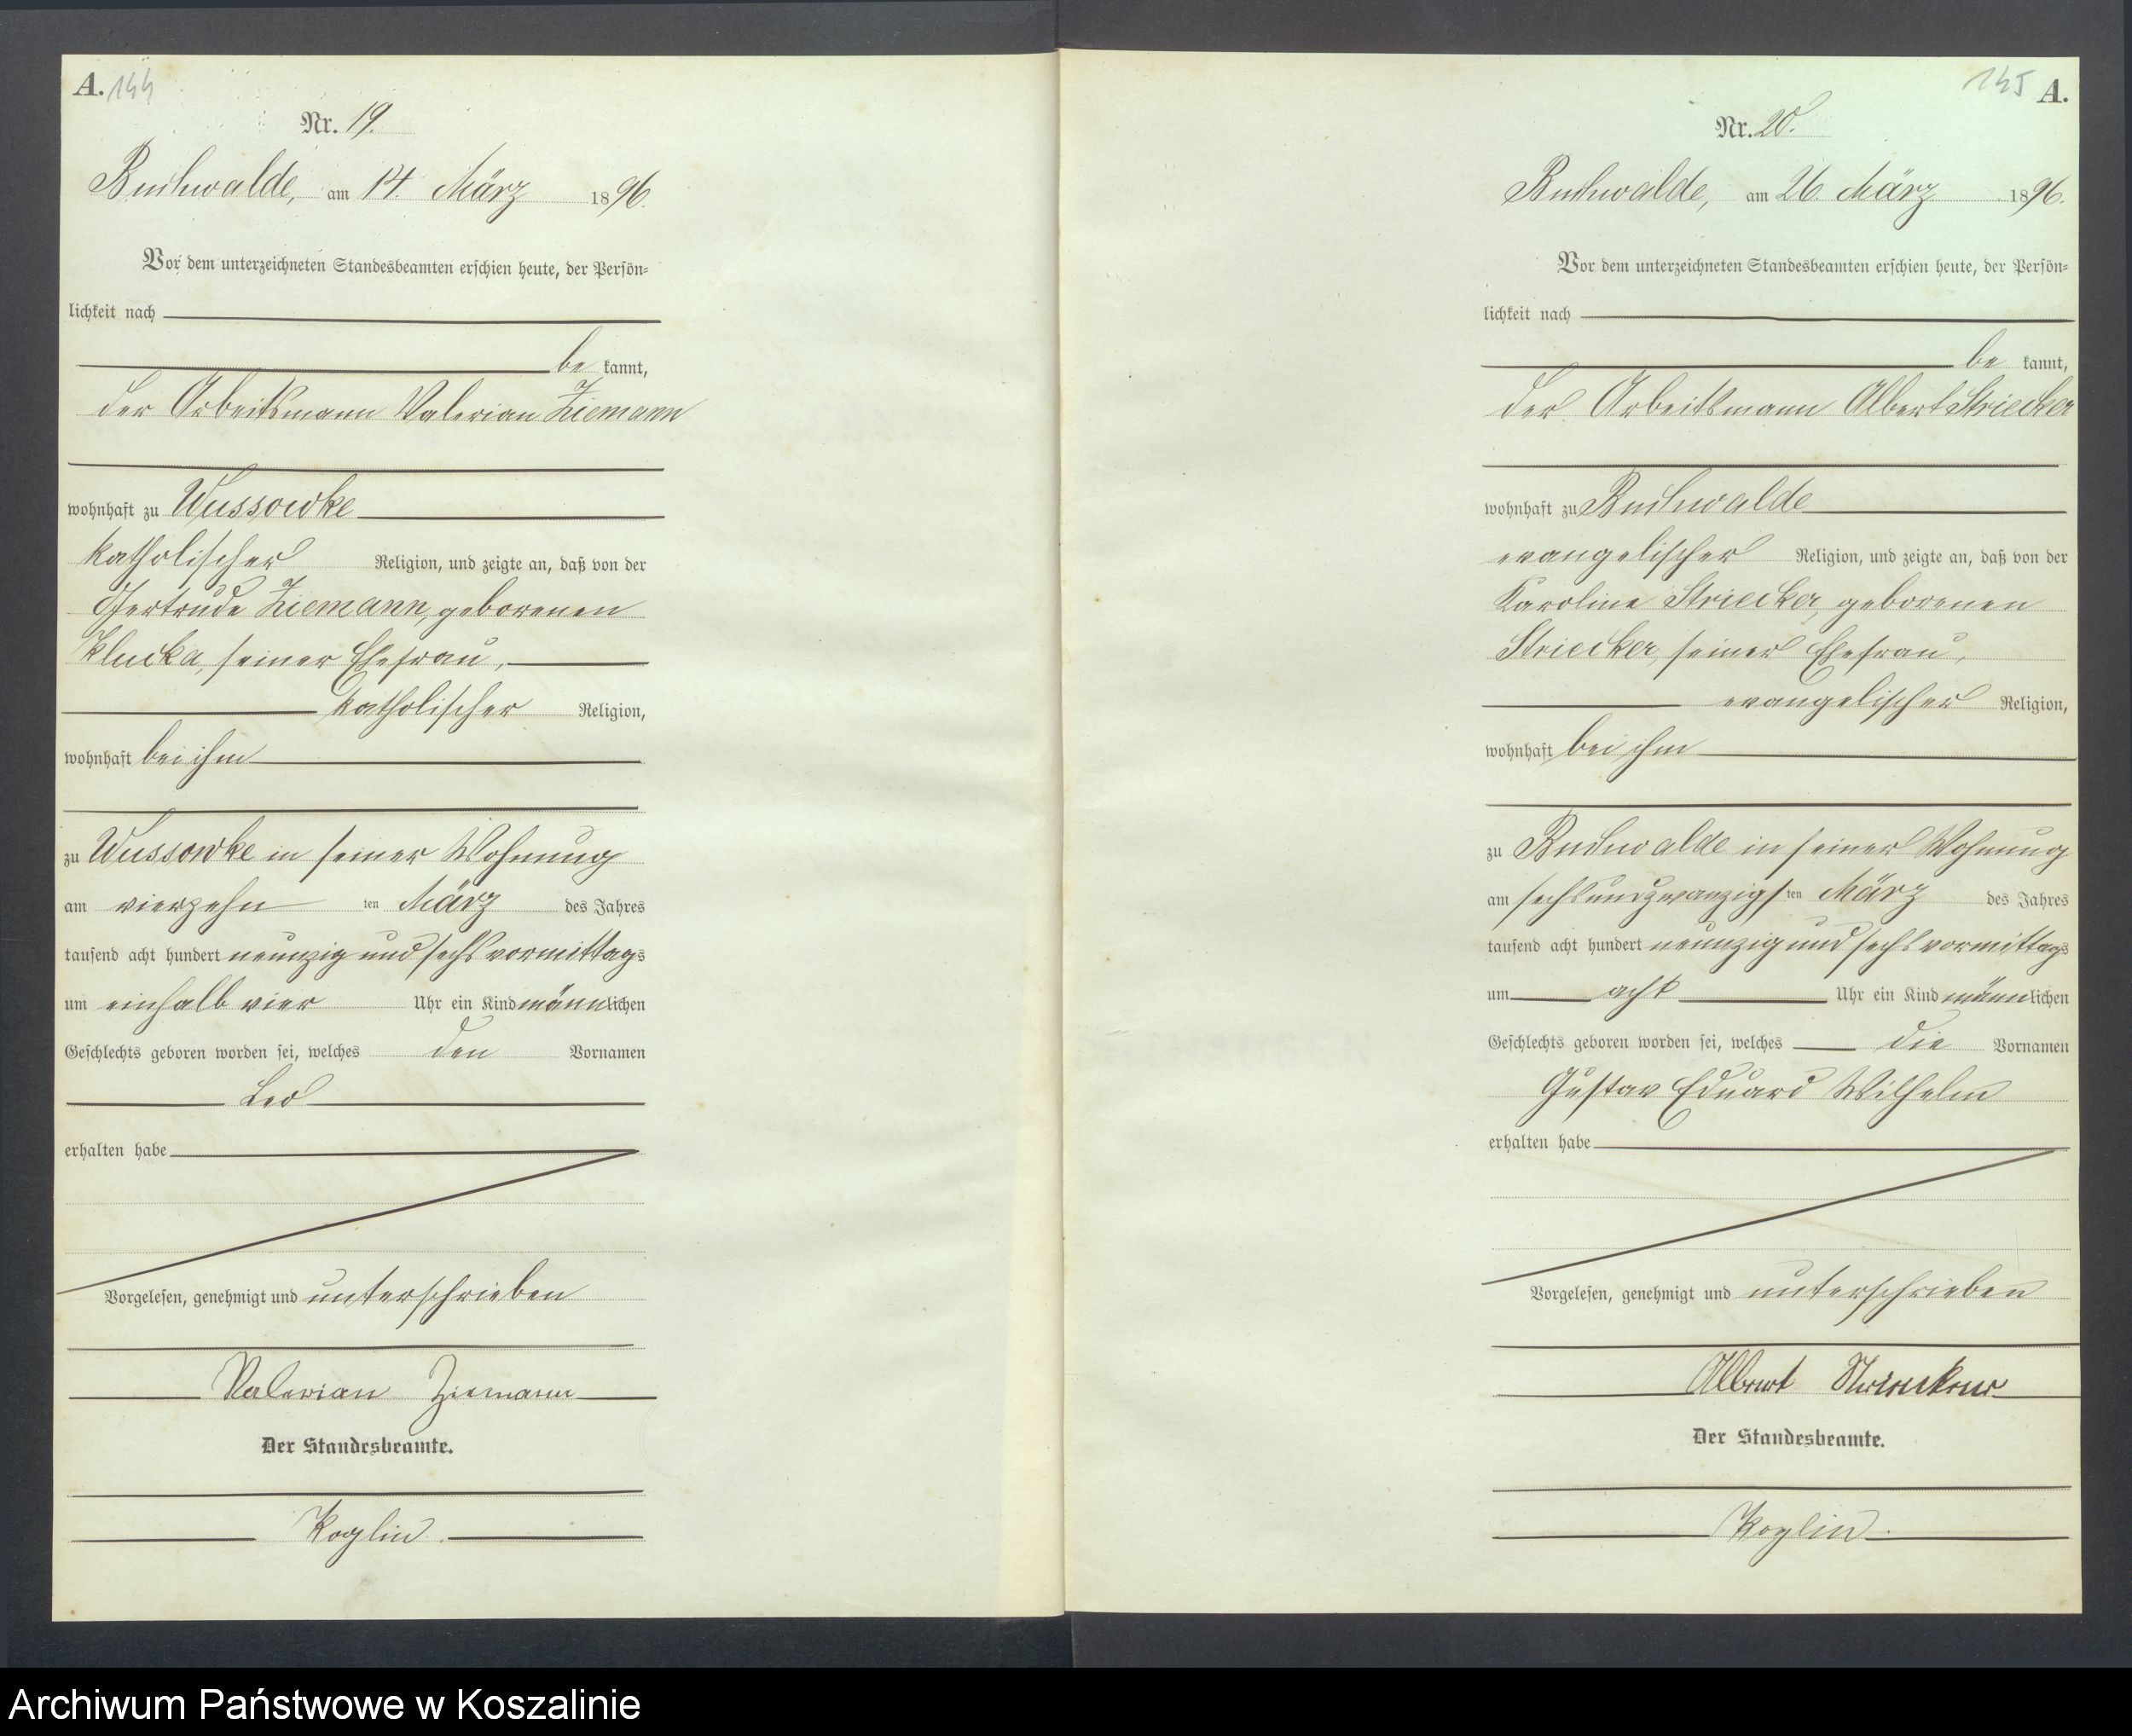 A. 144
Nr. 19.
Buchwalde, am 14. März 1896.
Vor dem unterzeichneten Standesbeamten erschien heute, der Persön=
lichkeit nach
be kannt,
der Arbeitsmann Valerian Ziemann
wohnhaft zu Wussowke
katholischer Religion, und zeigte an, daß von der
Gertrude Ziemann, geborenen
Klucka, seiner Ehefrau,
katholischer Religion,
wohnhaft bei ihm
zu Wussowke in seiner Wohnung
am vierzehn ten März des Jahres
tausend acht hundert neunzig und sechs vormittags
um einhalb vier Uhr ein Kind männlichen
Geschlechts geboren worden sei, welches den Vornamen
Leo
erhalten habe
Vorgelesen, genehmigt und unterschrieben
Valerian Ziemann
Der Standesbeamte.
Koglin.
145 A.
Nr. 20.
Buchwalde, am 26. März 1896.
Vor dem unterzeichneten Standesbeamten erschien heute, der Persön=
lichkeit nach
be kannt,
der Arbeitsmann Albert Striecker
wohnhaft zu Buchwalde
evangelischer Religion, und zeigte an, daß von der
Karoline Striecker, geborenen
Striecker, seiner Ehefrau,
evangelischer Religion,
wohnhaft bei ihm
zu Buchwalde in seiner Wohnung
am sechsundzwanzigsten März des Jahres
tausend acht hundert neunzig und sechs vormittags
um acht Uhr ein Kind männlichen
Geschlechts geboren worden sei, welches die Vornamen
Gustav Eduard Wilhelm
erhalten habe
Vorgelesen, genehmigt und unterschrieben
Albert Striecker
Der Standesbeamte.
Koglin.
Archiwum Państwowe w Koszalinie